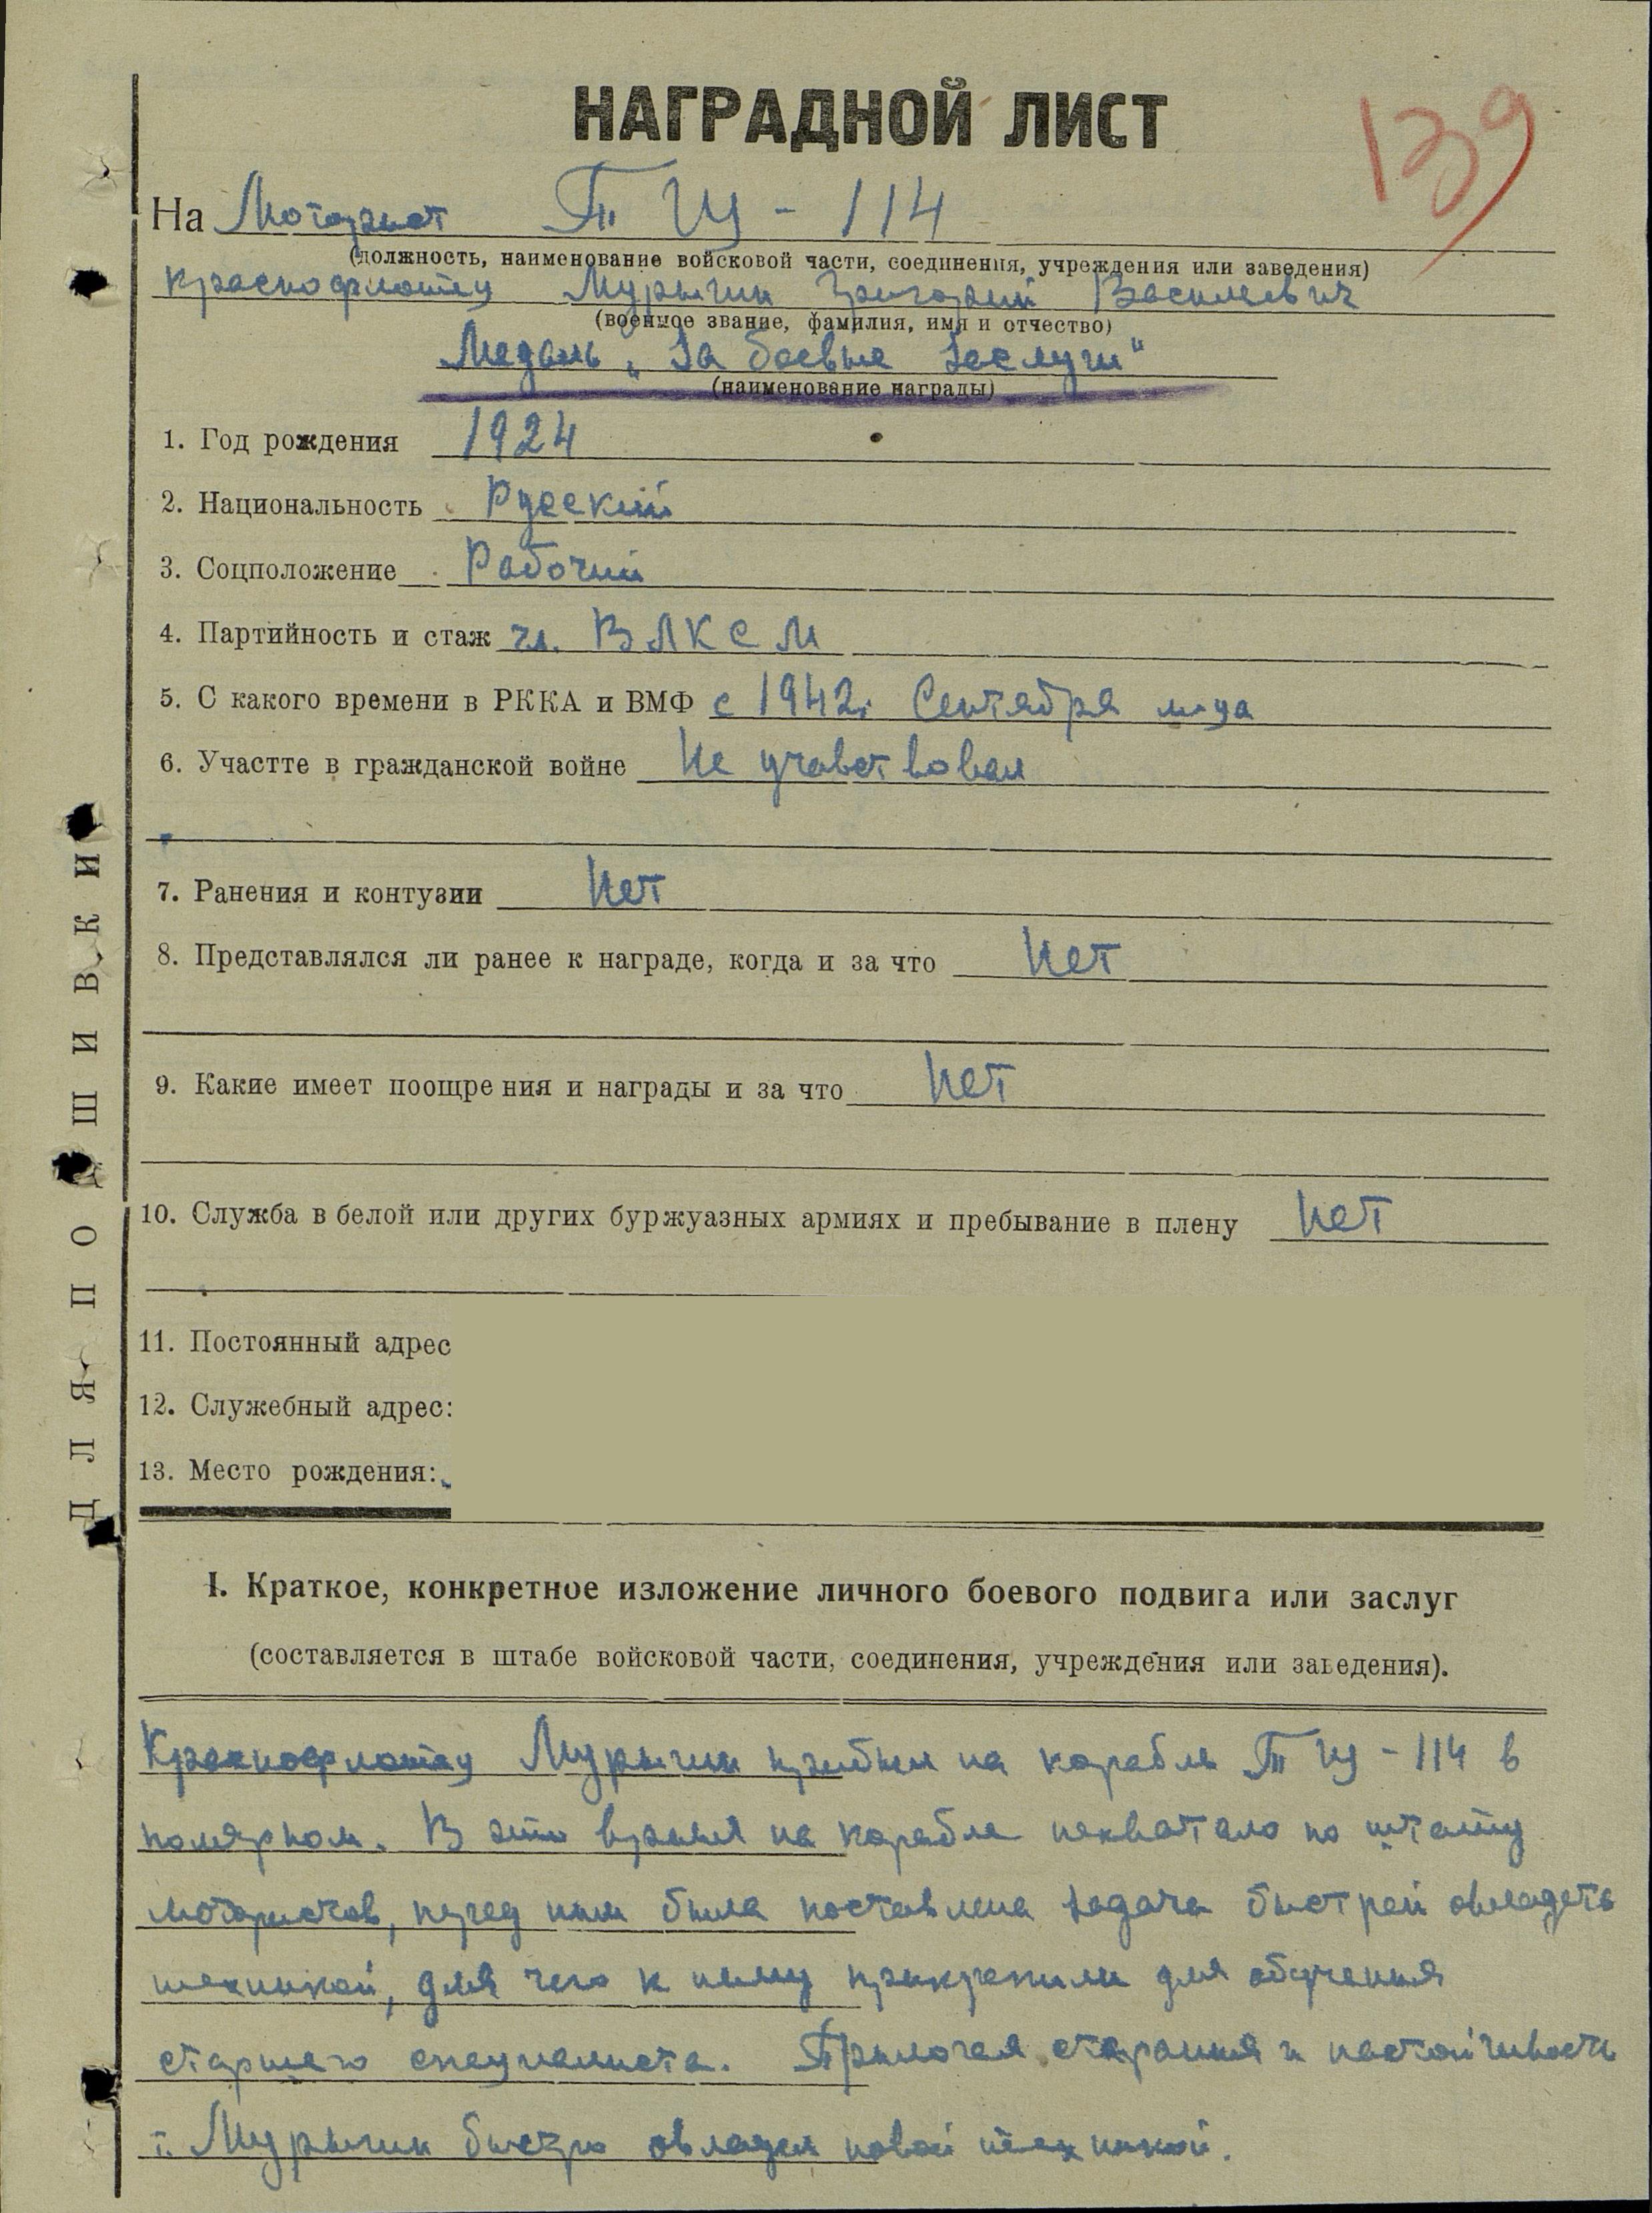 НАГРАДНОЙ ЛИСТ
139
На Моторист Т Щ - 114
(должность, наименование войсковой части, соединения, учреждения или заведения)
Краснофлотец Мурыгин Григорий Васильевич
(военное звание, фамилия, имя и отчество)
Медаль „За боевые заслуги"
(наименование награды)
1. Год рождения 1924
2. Национальность Русский
3. Соцположение Рабочий
4. Партийность и стаж чл. ВЛКСМ
5. С какого времени в РККА и ВМФ с 1942г Сентября м-ца
6. Участте в гражданской войне Не учавствовал
7. Ранения и контузии Нет
8. Представлялся ли ранее к награде, когда и за что Нет
9. Какие имеет поощрения и награды и за что Нет
10. Служба в белой или других буржуазных армиях и пребывание в плену Нет
11. Постоянный адрес
12. Служебный адрес:
13. Место рождения:
I. Краткое, конкретное изложение личного боевого подвига или заслуг
(составляется в штабе войсковой части, соединения, учреждения или заведения).
Краснофлотец Мурыгин прибыл на корабль ТЩ - 114 в
полярном. В это время на корабле нехватало по штату
мотористов, перед ним была поставлена задача быстрей овладеть
техникой, для чего к нему прикрепили для обучения
старшего специалиста. Прилогая старания и настойчивость
т. Мурыгин быстро овладел новой техникой.
ДЛЯ ПОДШИВКИ